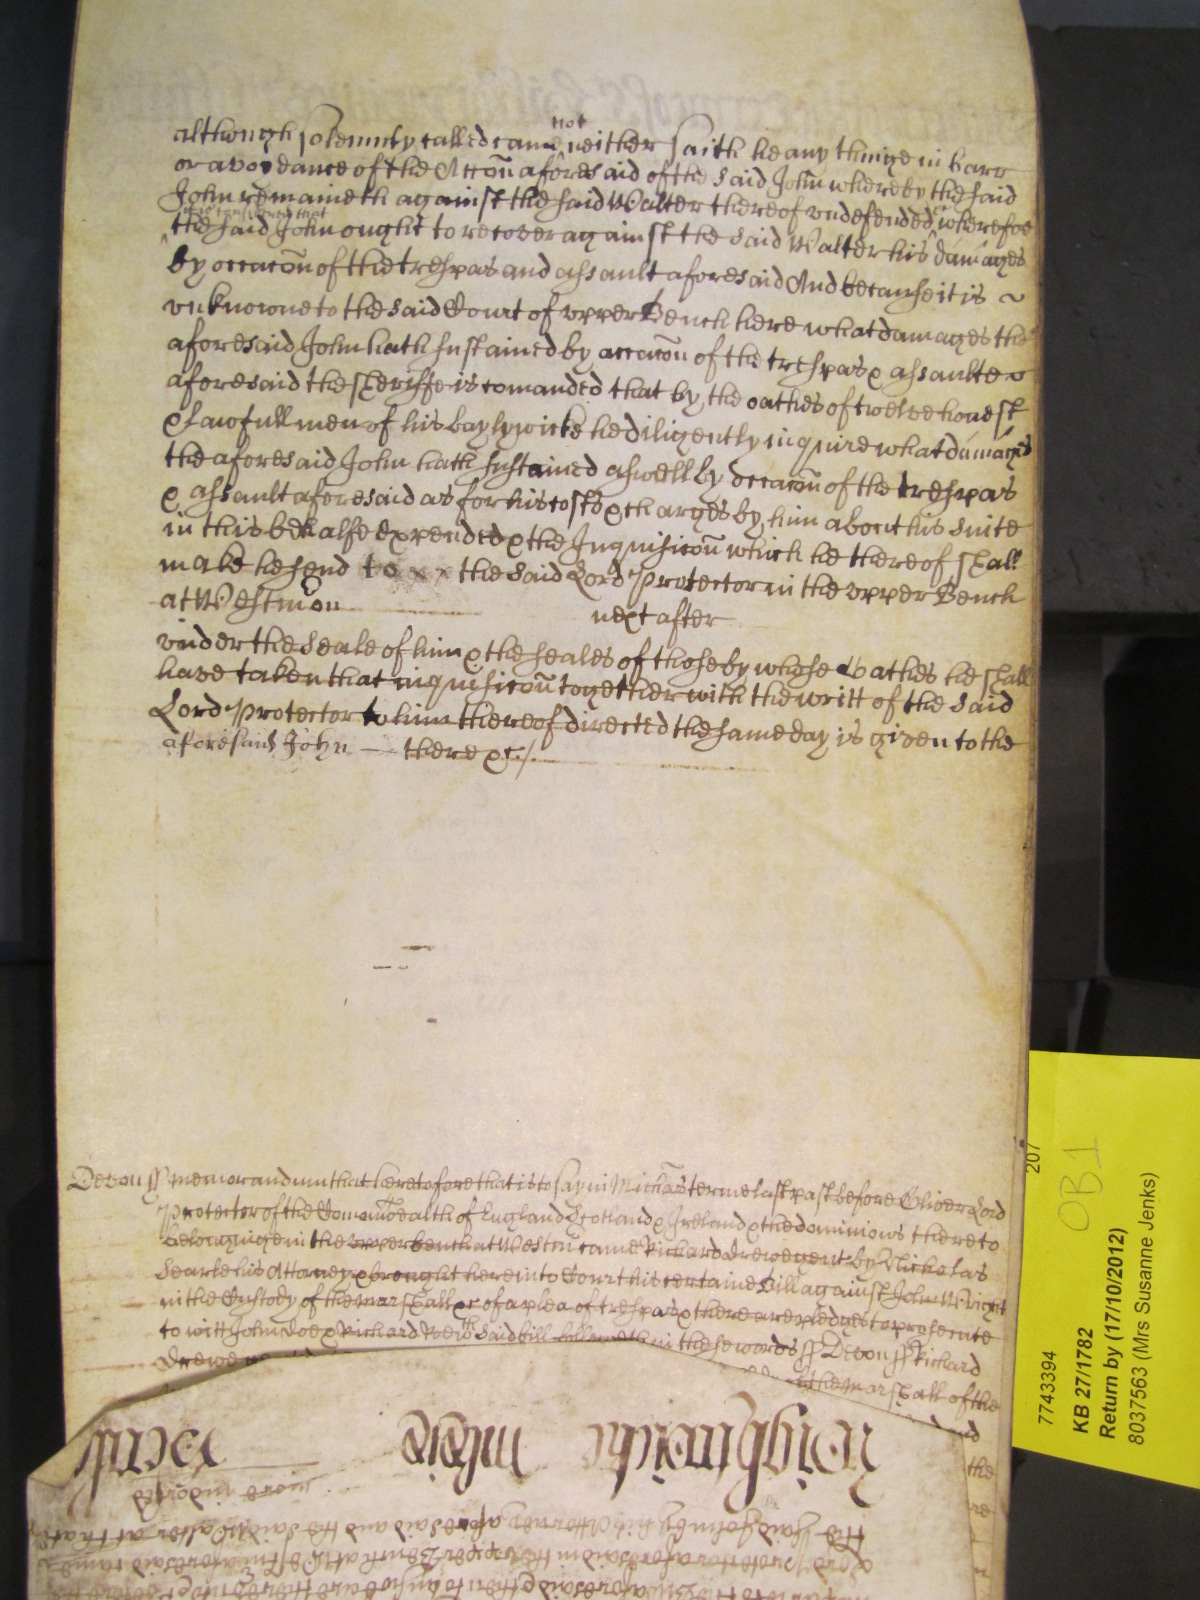 although solemnly called came not neither saith he any thinge in barr
or avoydance of the Accõn aforesaid of the said John whereby the said
John remaineth against the said Walter thereof undefended wherefore
the said John ought to recover against the said Walter his damages
by occacõn of the trespas and assault aforesaid And because it is
unknowne to the said Court of upper Bench here what damages the
aforesaid John hath sustained by occacõn of the trespas & assaulte
aforesaid the sheriffe is comanded that by the oathes of twelve honest
& lawfull men of his baylywicke he diligently inquire what damages
the aforesaid John hath sustained aswell by occacõn of the trespas
& assault aforesaid as for his costs & charges by him about his suite
in this behalfe expended & the Inquisicõn which he thereof shall
make he send to the said Lord Protector in the upper Bench
at Westm̃ on next after
under the seale of him & the seales of those by whose Oathes he shall
have taken that inquisicõn together with the writt of the said
Lord Protector to him thereof directed the same day is given to the
aforesaid John there &c/
Devon ss memorandum that heretofore that is to say in Michãs terme last past before Oliver Lord
Protector of the Comonwealth of England Scotland & Ireland & the dominions thereto
belonginge in the upper bench at Westm̃ came Richard Drewe gent by Nicholas
Searle his Attorney & brought here into Court his certaine Bill against John Wright
in the Custody of the marshall &c of a plea of trespas & there are pledges to prosecute
to witt John Doe & Richard Roe wᶜʰ said bill followeth in these words ss Devon ss Richard
Drewe
the marshall of the
and
the
re
Wightwicke
more indorsed
the said John by his Attorney aforesaid and the said Walter at that
Lord Protector aforesaid in the upper Bench at Westm̃ aforesaid came
207
OB1
7743394
KB 27/1782
Return by (17/10/2012)
8037563 (Mrs Susanne Jenks)